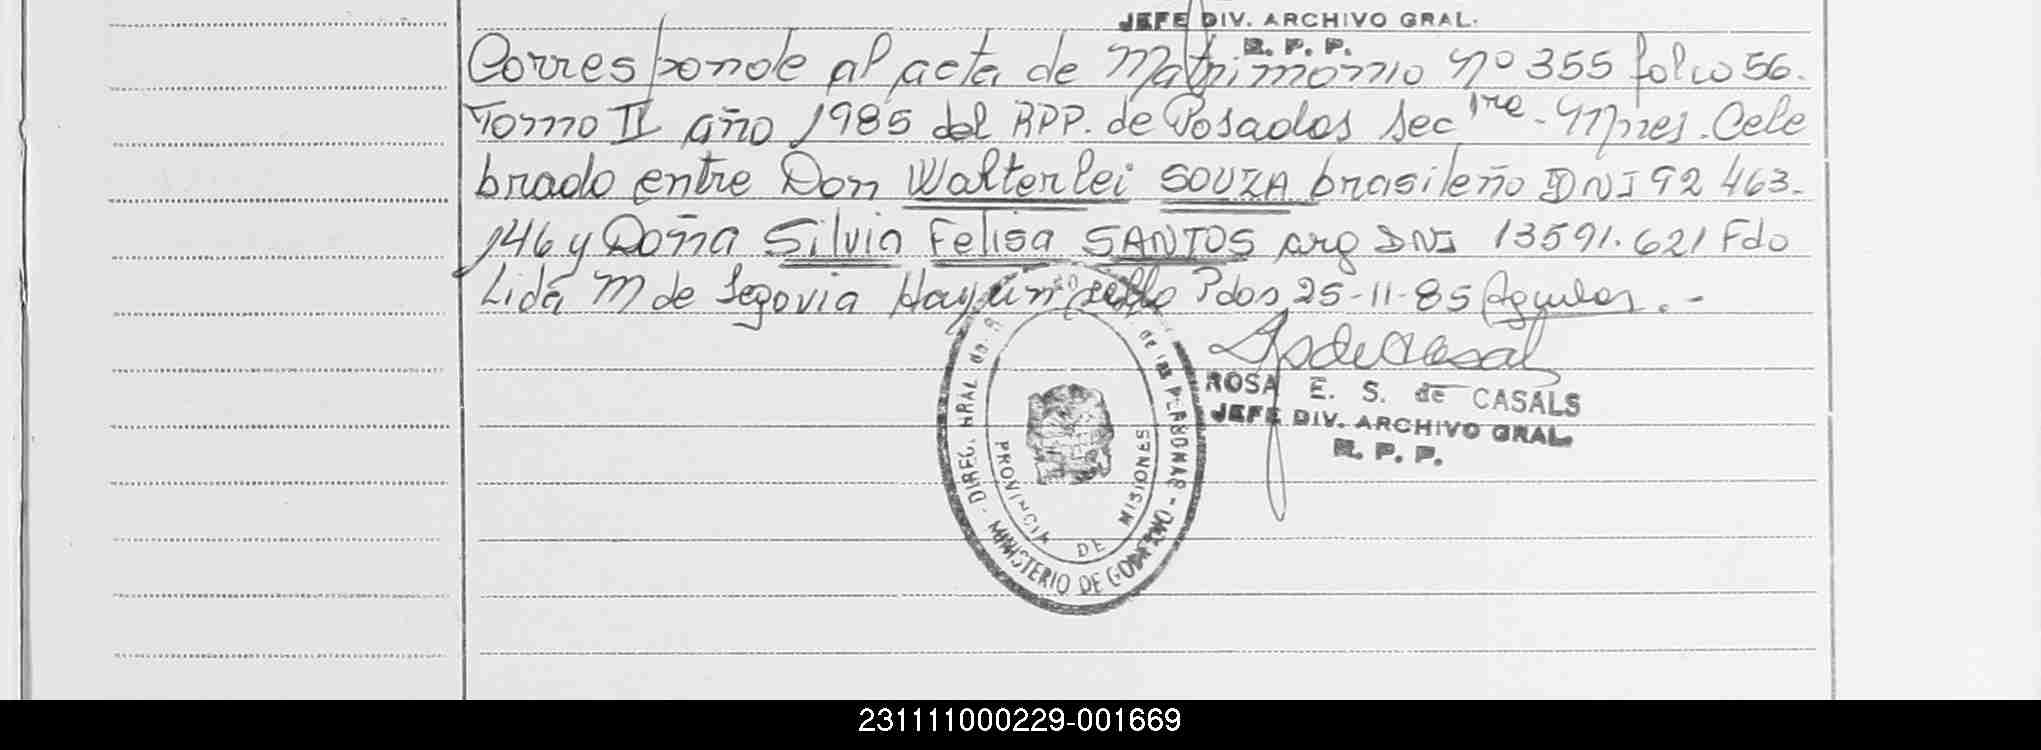 JEFE DIV. ARCHIVO GRAL.
R. P. P.
Corresponde al acta de Matrimonio nº 355 folio 56.
Tomo II año 1985 del RPP. de Posadas sec 1ra - Mnes. Cele
brado entre Don Walterlei SOUZA brasileño DNI 92 463.
146 y Doña Silvia Felisa SANTOS arg DNI 13591.621 Fdo
Lida M de Segovia Hay un sello Pdas 25-11-85
ROSA E. S. de CASALS
JEFE DIV. ARCHIVO GRAL.
R. P. P.
DIREC. GRAL de de las PERSONAS - MINISTERIO DE GOBIERNO -
PROVINCIA DE MISIONES
231111000229-001669